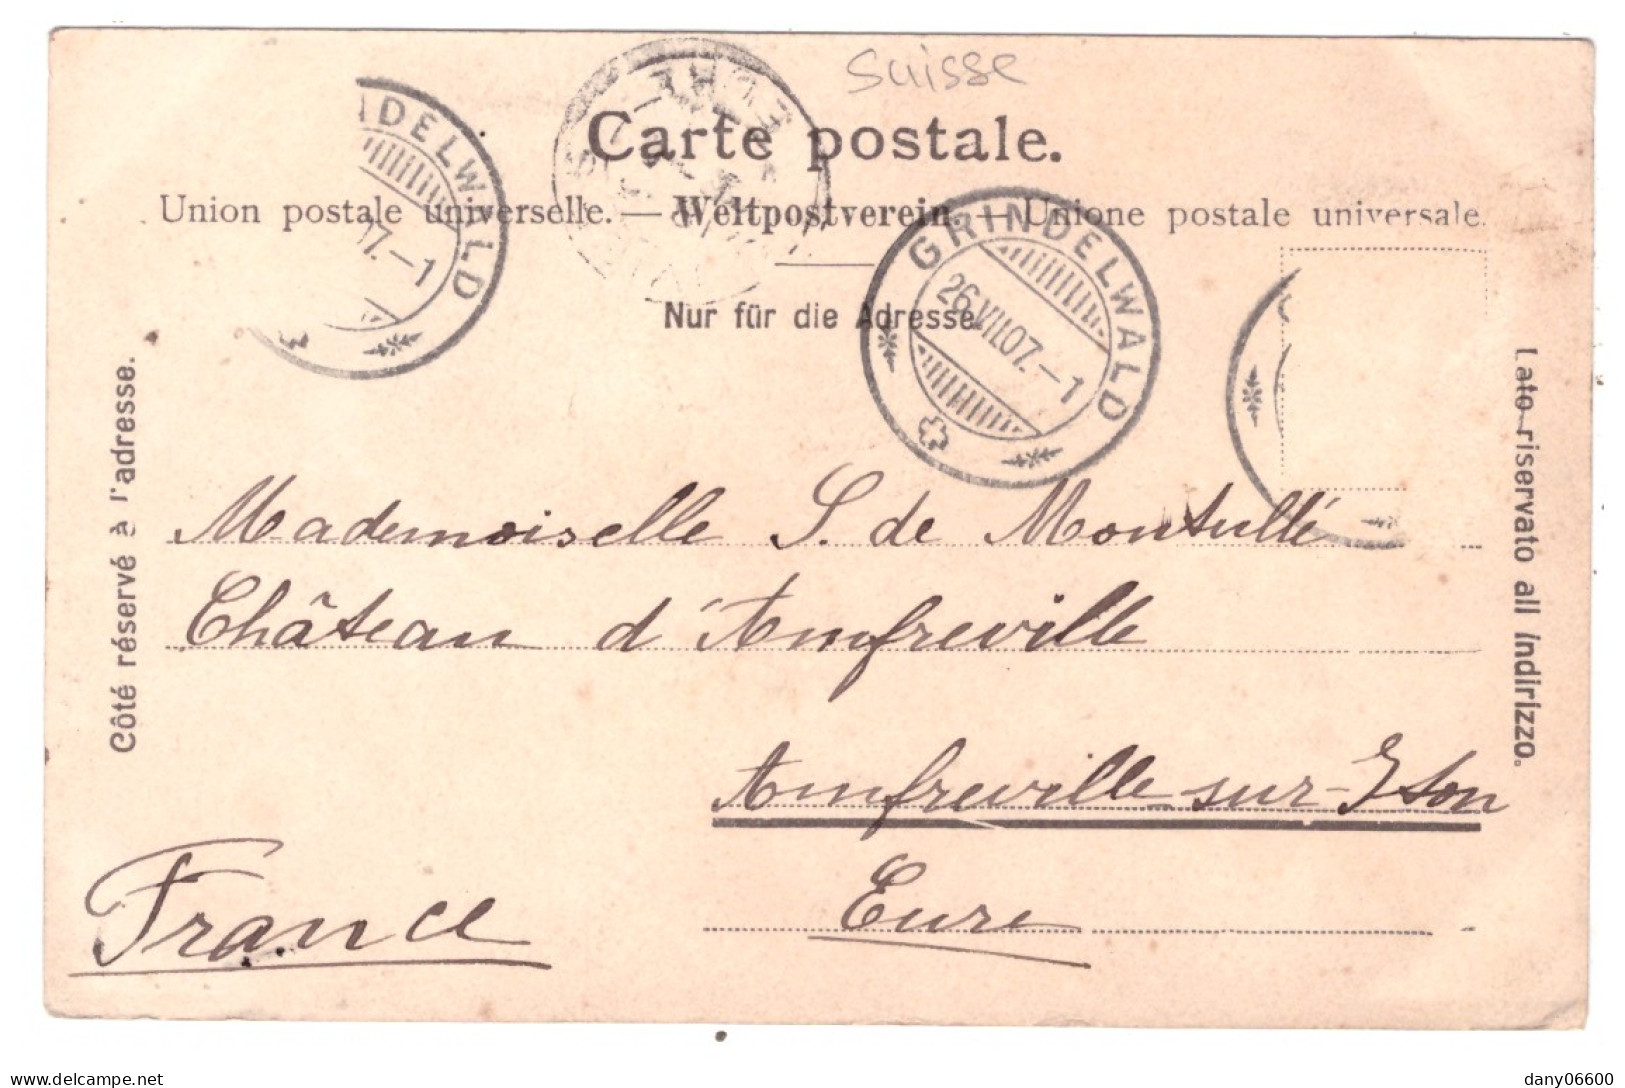 Suisse
Carte postale.
Union postale universelle. — Weltpostverein. — Unione postale universale.
Nur für die Adresse.
NDELWALD
07.–1
GRINDELWALD
26.VII.07.–1
Côté réservé à l'adresse.
Lato riservato all indirizzo.
Mademoiselle S. de Montullé
Château d'Amfreville
Amfreville-sur-Iton
Eure
France
www.delcampe.net
dany06600